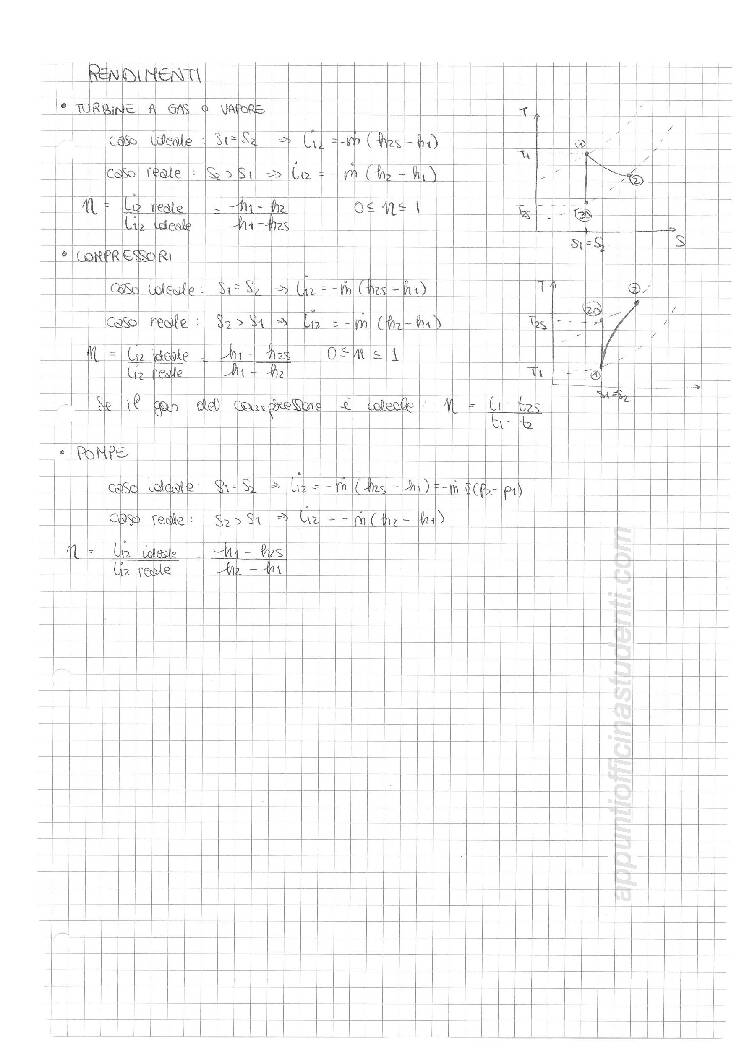 RENDIMENTI
• TURBINE A GAS O VAPORE
caso ideale : S1 = S2 => L̇12 = -ṁ (h2s - h1)
caso reale : S2 > S1 => L̇12 = ṁ (h2 - h1)
η = L̇12 reale / L̇12 ideale = -h1 - h2 / h1 - h2s 0 ≤ η ≤ 1
T
T1
1
2
2s
S1 = S2
S
• COMPRESSORI
caso ideale : S1 = S2 => L̇12 = -ṁ (h2s - h1)
caso reale : S2 > S1 => L̇12 = -ṁ (h2 - h1)
η = L̇12 ideale / L̇12 reale = h1 - h2s / h1 - h2 0 ≤ η ≤ 1
Se il gas del compressore è ideale : η = t1 - t2s / t1 - t2
T
2
T2s
T1
1
S1 = S2
• POMPE
caso ideale : S1 - S2 => L̇12 = -ṁ (h2s - h1) = -ṁ (p2 - p1)
caso reale : S2 > S1 => L̇12 - - ṁ (h2 - h1)
η = L̇12 ideale / L̇12 reale -h1 - h2s / h2 - h1
appuntiofficinastudenti.com